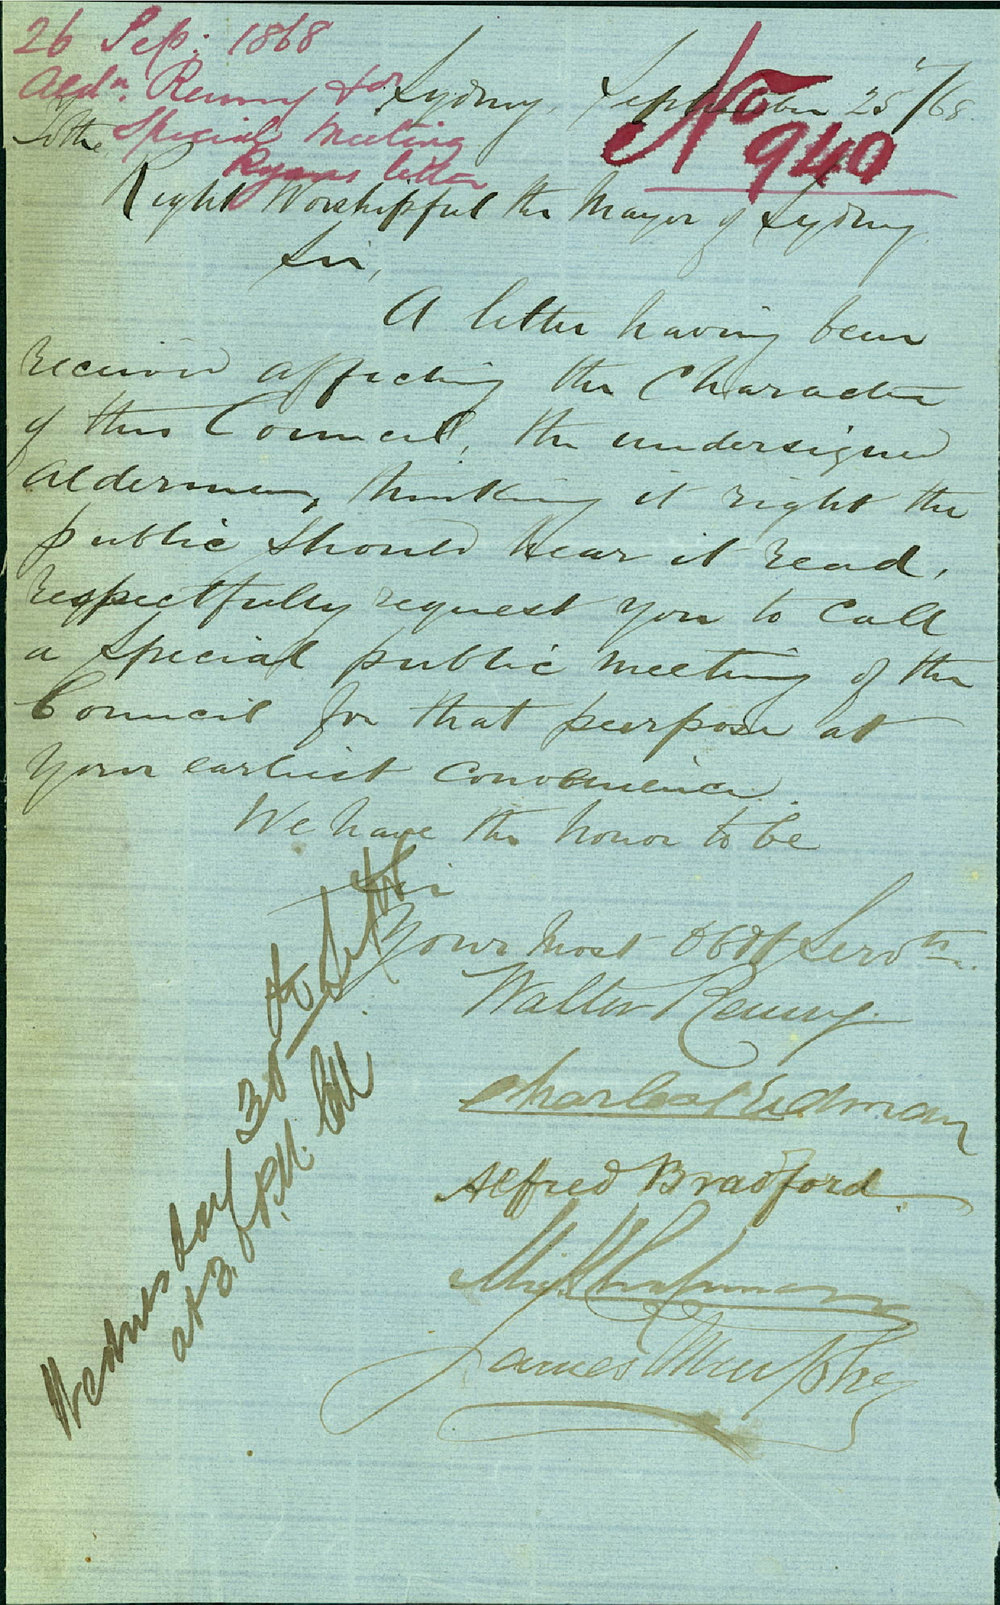 26 Sep. 1868
Aldn. Renny & or
Special Meeting
Ryans letter
No 940
Sydney, September 25/68.
To the
Right Worshipful the Mayor of Sydney
Sir,
A letter having been
received affecting the Character
of this Council, the undersigned
Aldermen, thinking it right the
public should hear it read,
respectfully request you to call
a special public meeting of the
Council for that purpose at
your earliest convenience.
We have the honor to be
Sir
Your most Obdt Servts.
Walter Renny.
Charles Eadman
Alfred Bradford
Chapman
James Murphy
Wednesday 30th Septr
at 3, P.M.